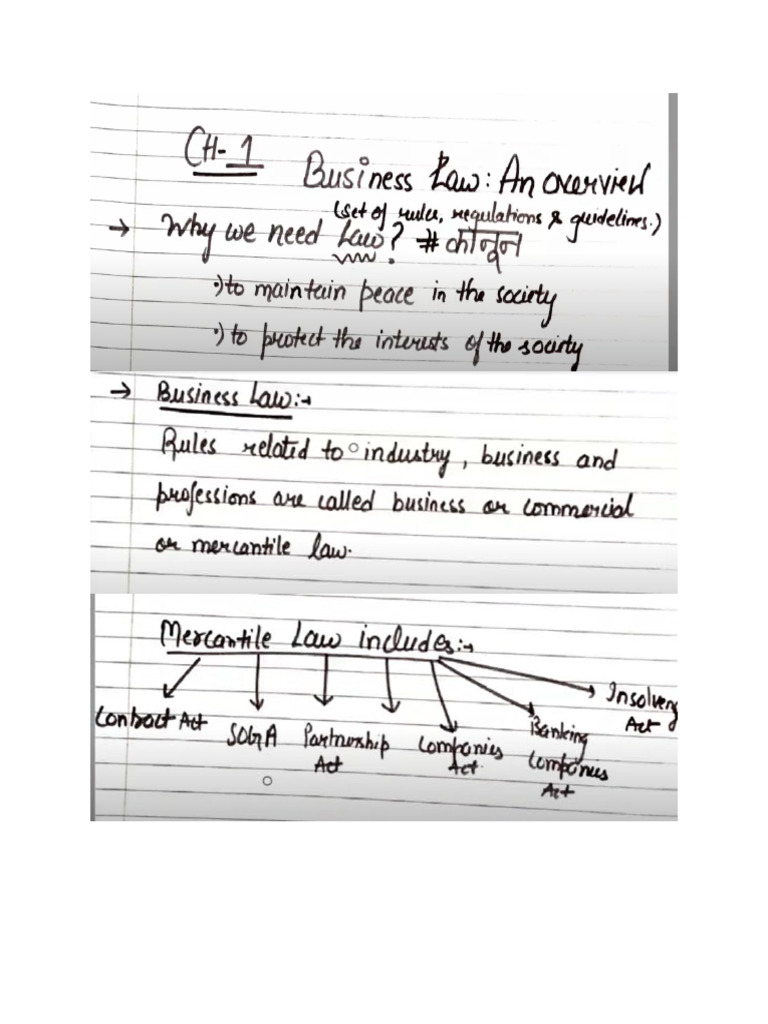 CH-1
Business Law: An overview
(set of rules, regulations & guidelines.)
→ Why we need Law? # कानून
·) to maintain peace in the society
·) to protect the interests of the society
→ Business Law:→
Rules related to industry, business and
professions are called business or commercial
or mercantile law.
Mercantile Law includes:→
Contract Act
SOGA
Partnership
Act
Companies
Act.
Banking
Companies
Act
Insolvency
Act